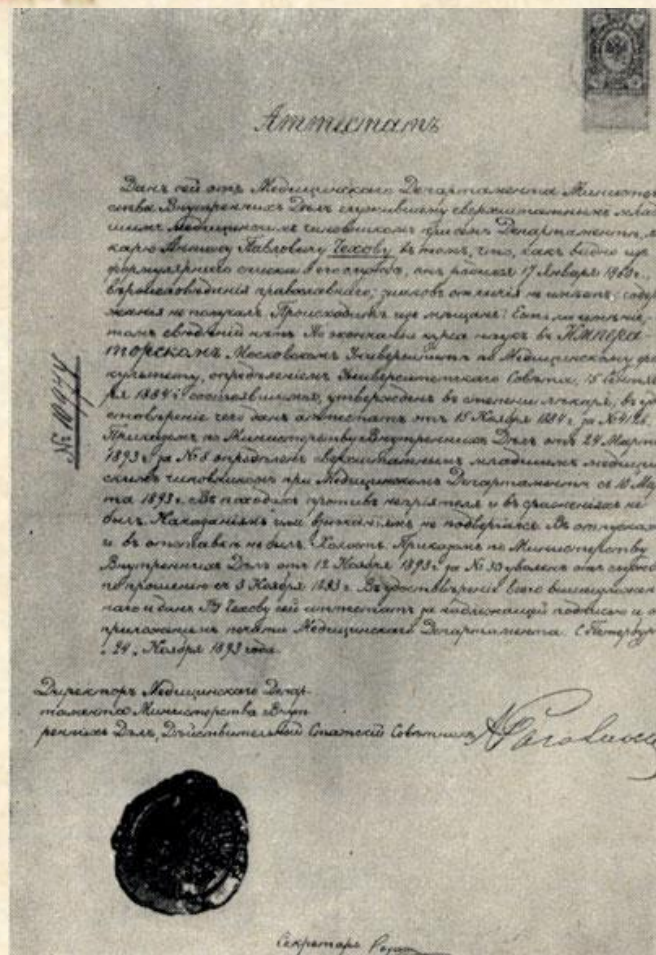 Аттестатъ
Данъ сей отъ Медицинскаго Департамента Министер
ства Внутреннихъ Дѣлъ служившему сверхштатнымъ млад
шимъ Медицинскимъ чиновникомъ при семъ Департаментѣ, лѣ
карю Антону Павловичу Чехову въ томъ, что, какъ видно изъ
формулярнаго списка о его службѣ, онъ родился 17 Января 1860 г.,
вѣроисповѣданія православнаго; знаковъ отличія не имѣетъ; содер
жанія не получалъ. Происходитъ изъ мѣщанъ. Есть ли имѣніе,
томъ свѣдѣній нѣтъ. По окончаніи курса наукъ въ Импера
торскомъ Московскомъ Университетѣ по Медицинскому фа
культету, опредѣленіемъ Университетскаго Совѣта, 15 Сентяб
ря 1884 г. состоявшимся, утвержденъ въ степени лѣкаря, въ удо
стовѣреніе чего данъ аттестатъ отъ 15 Ноября 1884 г. за № 4126.
Приказомъ по Министерству Внутреннихъ Дѣлъ отъ 24 Марта
1893 г. за № 8 опредѣленъ сверхштатнымъ младшимъ медицин
скимъ чиновникомъ при Медицинскомъ Департаментѣ съ 10 Мар
та 1893 г. Въ походахъ противъ непріятеля и въ сраженіяхъ не
былъ. Наказаніямъ или взысканіямъ не подвергался. Въ отпускахъ
и въ отставкѣ не былъ. Холостъ. Приказомъ по Министерству
Внутреннихъ Дѣлъ отъ 12 Ноября 1893 г. за № 33 уволенъ отъ службы
по прошенію съ 3 Ноября 1893 г. Въ удостовѣреніе всего вышеизложен
наго и данъ Чехову сей аттестатъ за надлежащей подписью и съ
приложеніемъ печати Медицинскаго Департамента. С. Петербург
24, Ноября 1893 года.
№ 10974
Директоръ Медицинскаго Депар-
тамента Министерства Внут
реннихъ Дѣлъ, Дѣйствительный Статскій Совѣтникъ
Секретарь